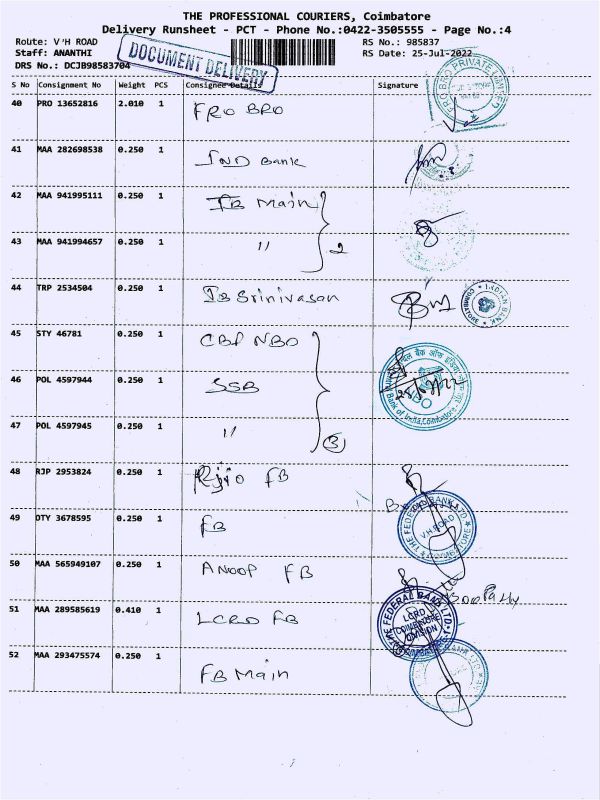 THE PROFESSIONAL COURIERS, Coimbatore
Delivery Runsheet - PCT - Phone No.:0422-3505555 - Page No.:4
Route: V'H ROAD RS No.: 985837
Staff: ANANTHI RS Date: 25-Jul-2022
DRS No.: DCJB98583704
DOCUMENT DELIVERY
S No Consignment No Weight PCS Consignee Details Signature
40 PRO 13652816 2.010 1 FRO BRO
FRO BRO PRIVATE LIMITED
41 MAA 282698538 0.250 1 IND Bank
42 MAA 941995111 0.250 1 IB Main
43 MAA 941994657 0.250 1 " 2
44 TRP 2534504 0.250 1 IB Srinivasan
INDIAN BANK
45 STY 46781 0.250 1 CBE NBO
46 POL 4597944 0.250 1 SSB
Bank of India, Coimbatore
47 POL 4597945 0.250 1 " 3
48 RJP 2953824 0.250 1 FB
49 OTY 3678595 0.250 1 FB
THE FEDERAL BANK LTD
V.H.ROAD
COIMBATORE
50 MAA 565949107 0.250 1 ANOOP FB
51 MAA 289585619 0.410 1 LCRD FB
THE FEDERAL BANK LTD.
LCRD
COIMBATORE
DIVISION
52 MAA 293475574 0.250 1 FB Main